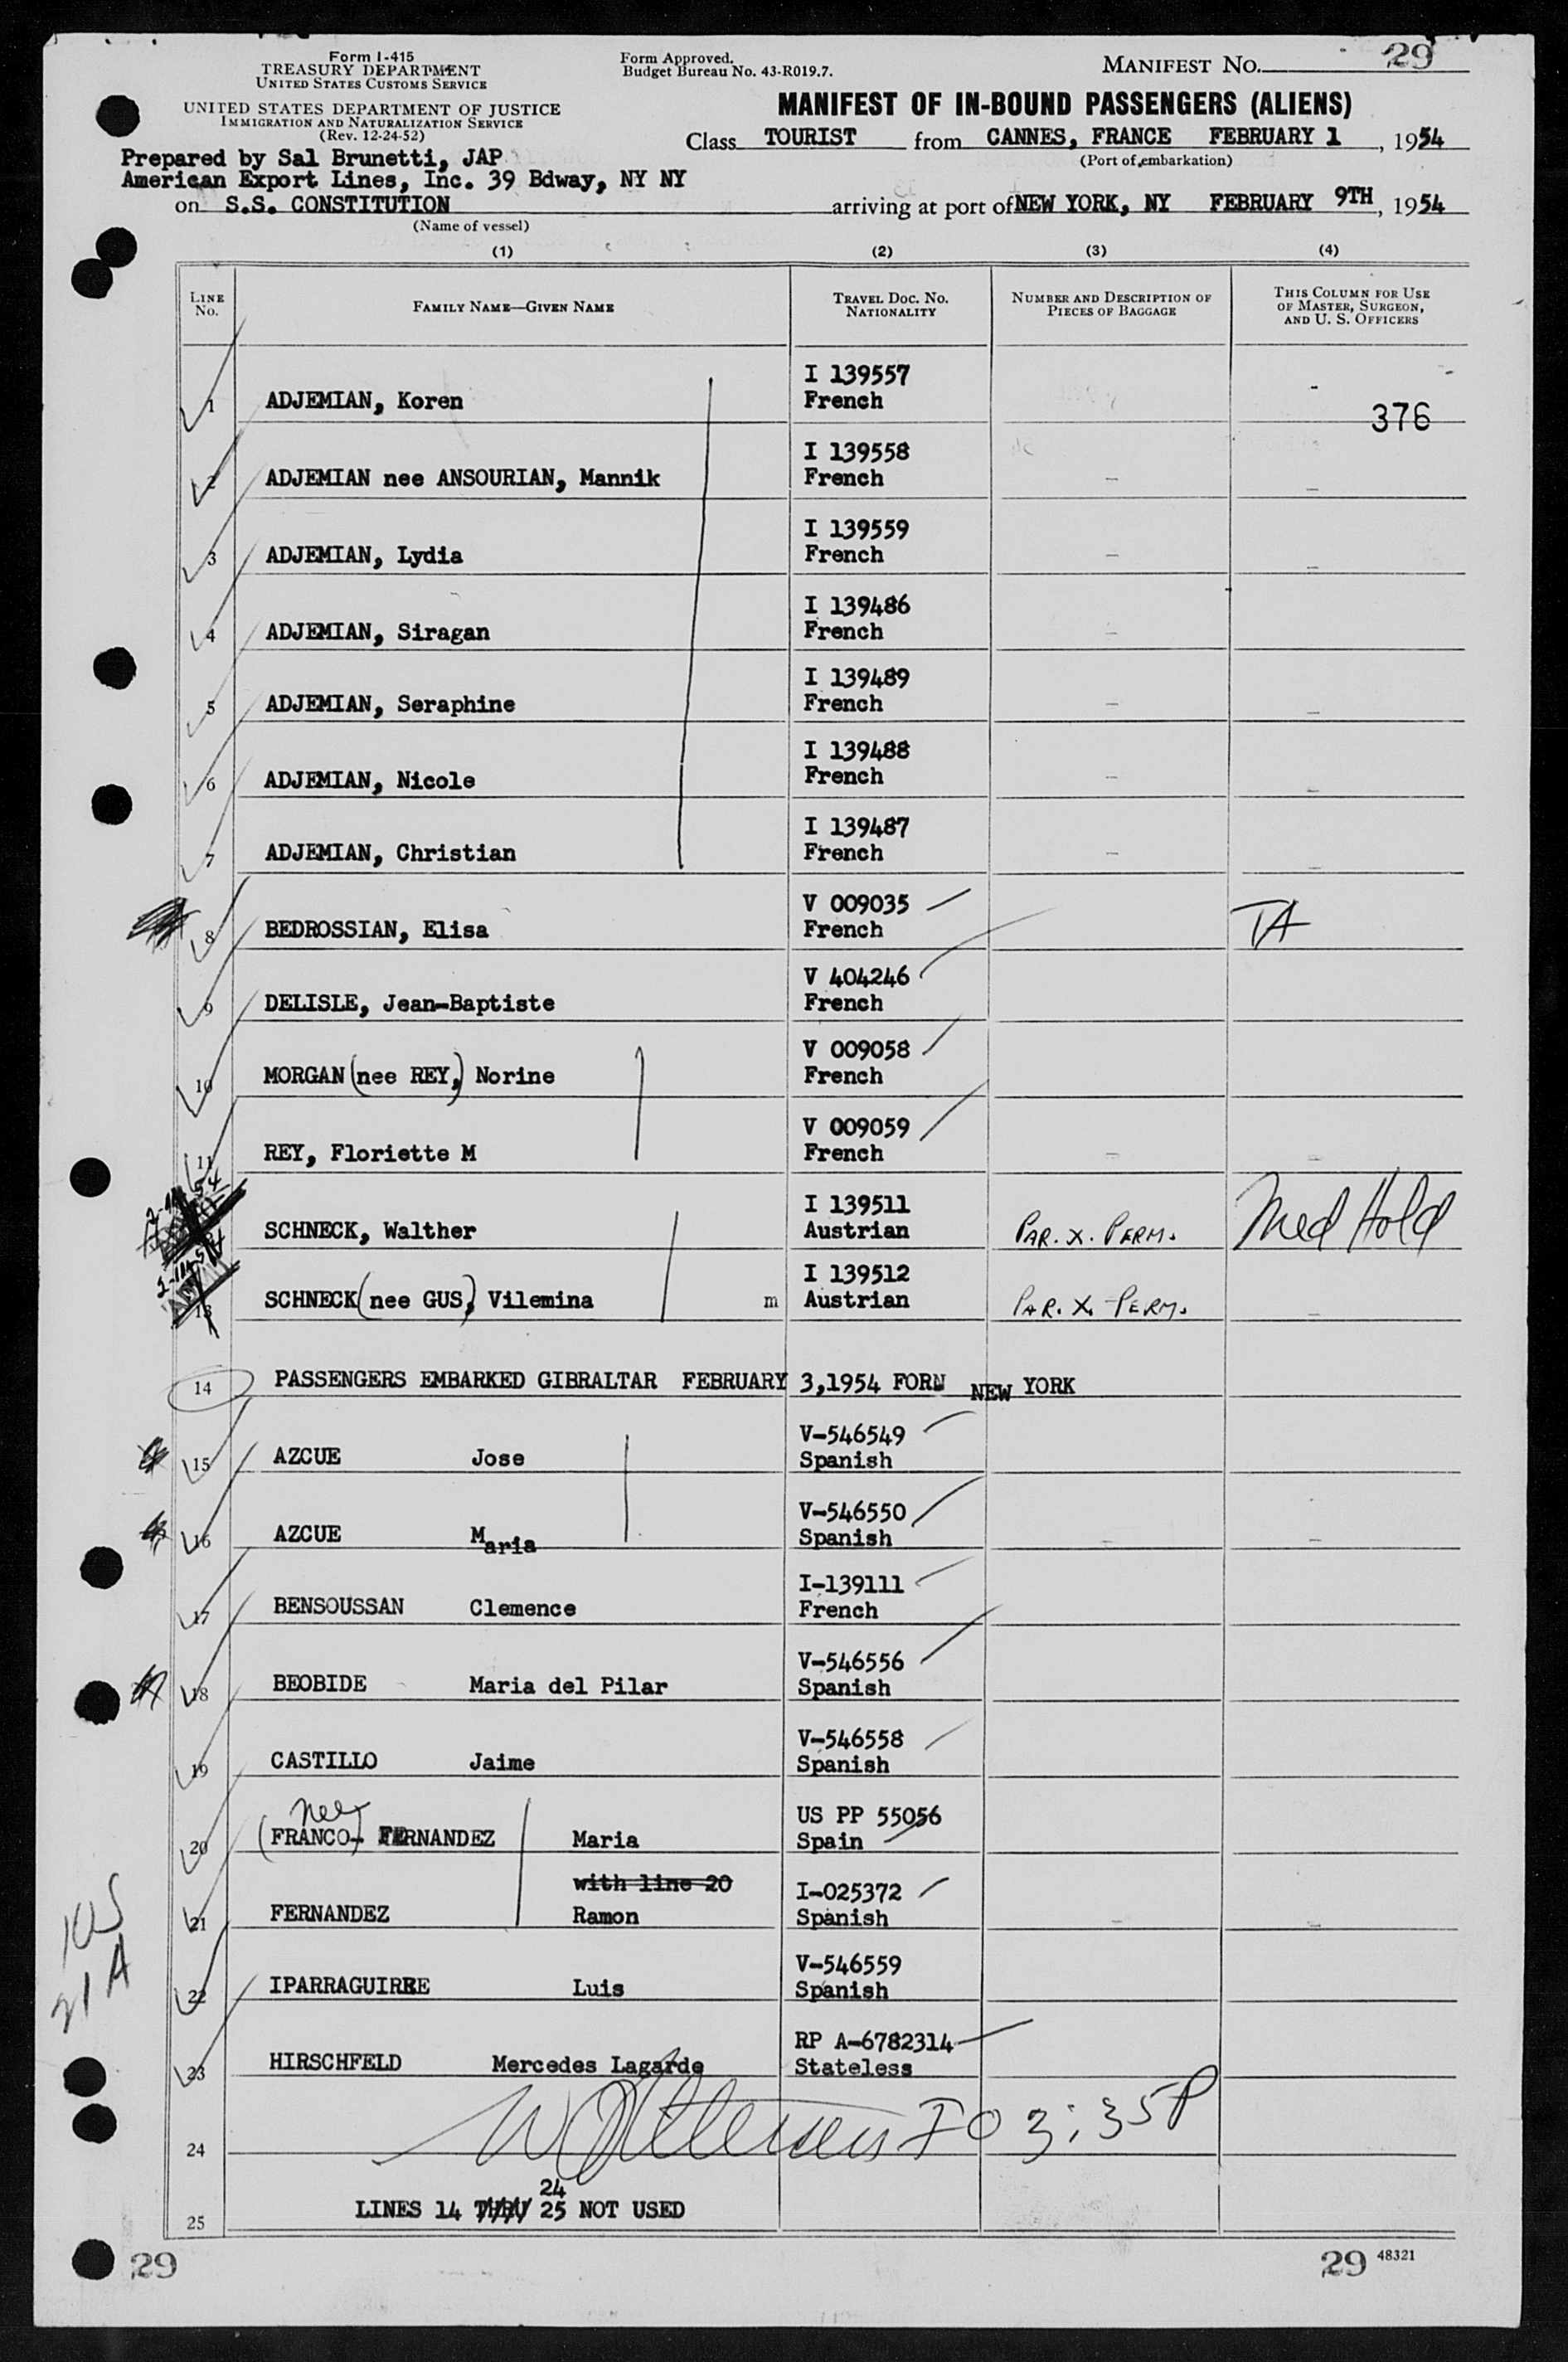 Form I-415
TREASURY DEPARTMENT
UNITED STATES CUSTOMS SERVICE
UNITED STATES DEPARTMENT OF JUSTICE
IMMIGRATION AND NATURALIZATION SERVICE
(Rev. 12-24-52)
Form Approved.
Budget Bureau No. 43-R019.7.
MANIFEST NO. 29
MANIFEST OF IN-BOUND PASSENGERS (ALIENS)
Class TOURIST from CANNES, FRANCE FEBRUARY 1, 1954
(Port of embarkation)
Prepared by Sal Brunetti, JAP
American Export Lines, Inc. 39 Bdway, NY NY
on S.S. CONSTITUTION arriving at port of NEW YORK, NY FEBRUARY 9TH, 1954
(Name of vessel)
(1) (2) (3) (4)
LINE NO. FAMILY NAME—GIVEN NAME TRAVEL DOC. NO. NATIONALITY NUMBER AND DESCRIPTION OF PIECES OF BAGGAGE THIS COLUMN FOR USE OF MASTER, SURGEON, AND U. S. OFFICERS
I 139557
1 ADJEMIAN, Koren French 376
I 139558
2 ADJEMIAN nee ANSOURIAN, Mannik French
I 139559
3 ADJEMIAN, Lydia French
I 139486
4 ADJEMIAN, Siragan French
I 139489
5 ADJEMIAN, Seraphine French
I 139488
6 ADJEMIAN, Nicole French
I 139487
7 ADJEMIAN, Christian French
V 009035
8 BEDROSSIAN, Elisa French TA
V 404246
9 DELISLE, Jean-Baptiste French
V 009058
10 MORGAN (nee REY,) Norine French
V 009059
11 REY, Floriette M French
I 139511
SCHNECK, Walther Austrian PAR. X. PERM. Med Hold
I 139512
13 SCHNECK (nee GUS,) Vilemina m Austrian PAR. X. PERM.
14 PASSENGERS EMBARKED GIBRALTAR FEBRUARY 3,1954 FORN NEW YORK
V-546549
15 AZCUE Jose Spanish
V-546550
16 AZCUE Maria Spanish
I-139111
17 BENSOUSSAN Clemence French
V-546556
18 BEOBIDE Maria del Pilar Spanish
V-546558
19 CASTILLO Jaime Spanish
nee US PP 55056
20 (FRANCO-) FERNANDEZ Maria Spain
with line 20 I-025372
21 FERNANDEZ Ramon Spanish
V-546559
22 IPARRAGUIRRE Luis Spanish
RP A-6782314
23 HIRSCHFELD Mercedes Lagarde Stateless
24 IO 3:35P
24
25 LINES 14 THRU 25 NOT USED
21A
29 29 48321